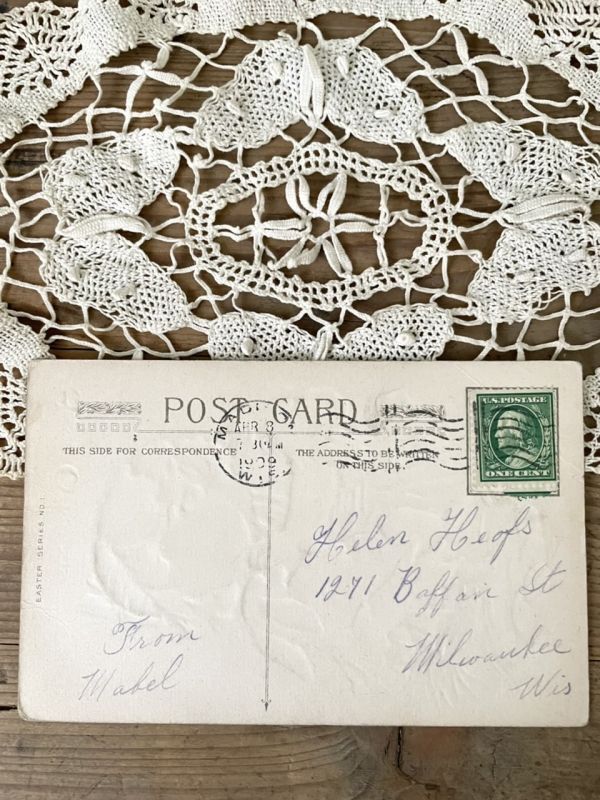 POST CARD
THIS SIDE FOR CORRESPONDENCE
THE ADDRESS TO BE WRITTEN
ON THIS SIDE.
APR 8
1909
WIS
U.S. POSTAGE
ONE CENT
EASTER SERIES NO. 1.
Helen Heofs
1271 Baffan St
Milwaukee
Wis
From
Mabel